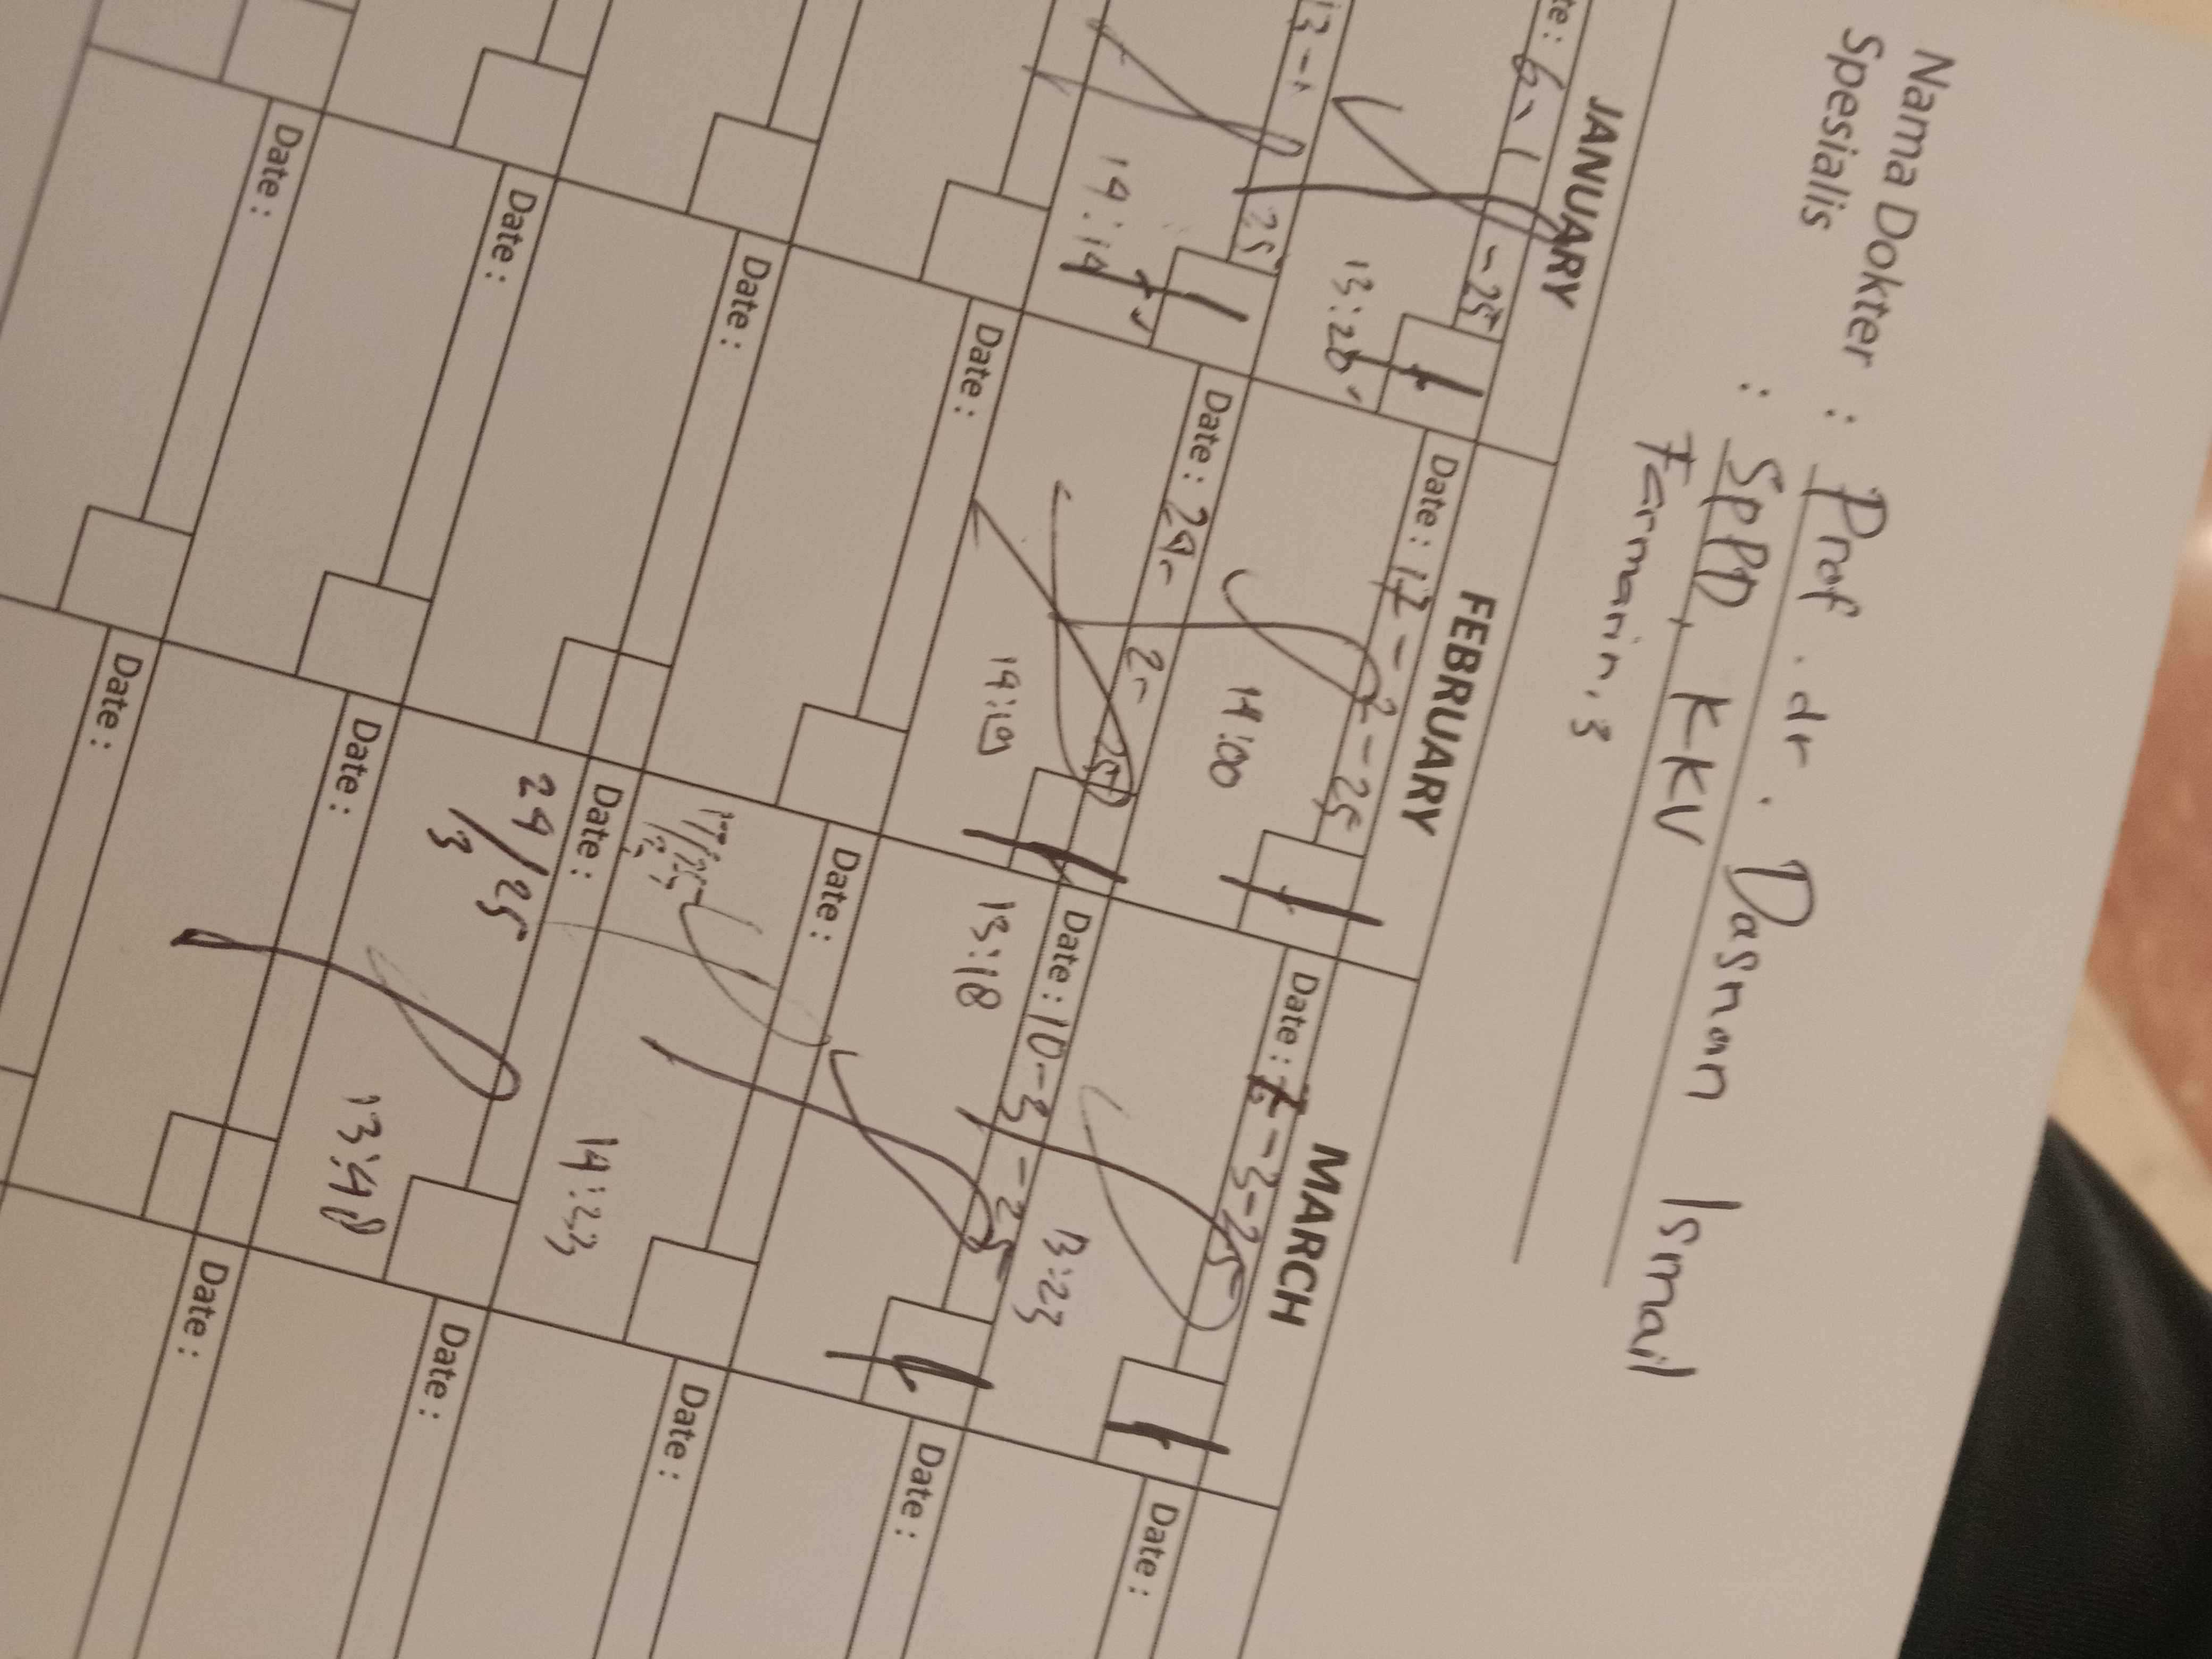 Nama Dokter : Prof. dr. Dasnan Ismail
Spesialis : SpPD, KKV
Farmarin, 3
JANUARY FEBRUARY MARCH
te: 6-1-25 Date: 17-2-25 Date: -3-25 Date:
13:28 14:00 13:23
13-1 25 Date: 24- 2- 25 Date: 10-3-25 Date:
14:14 14:09 13:18
Date: Date: Date:
17/25 14:23
Date: Date: Date:
24/25
3
13:48
Date: Date: Date:
Date: Date: